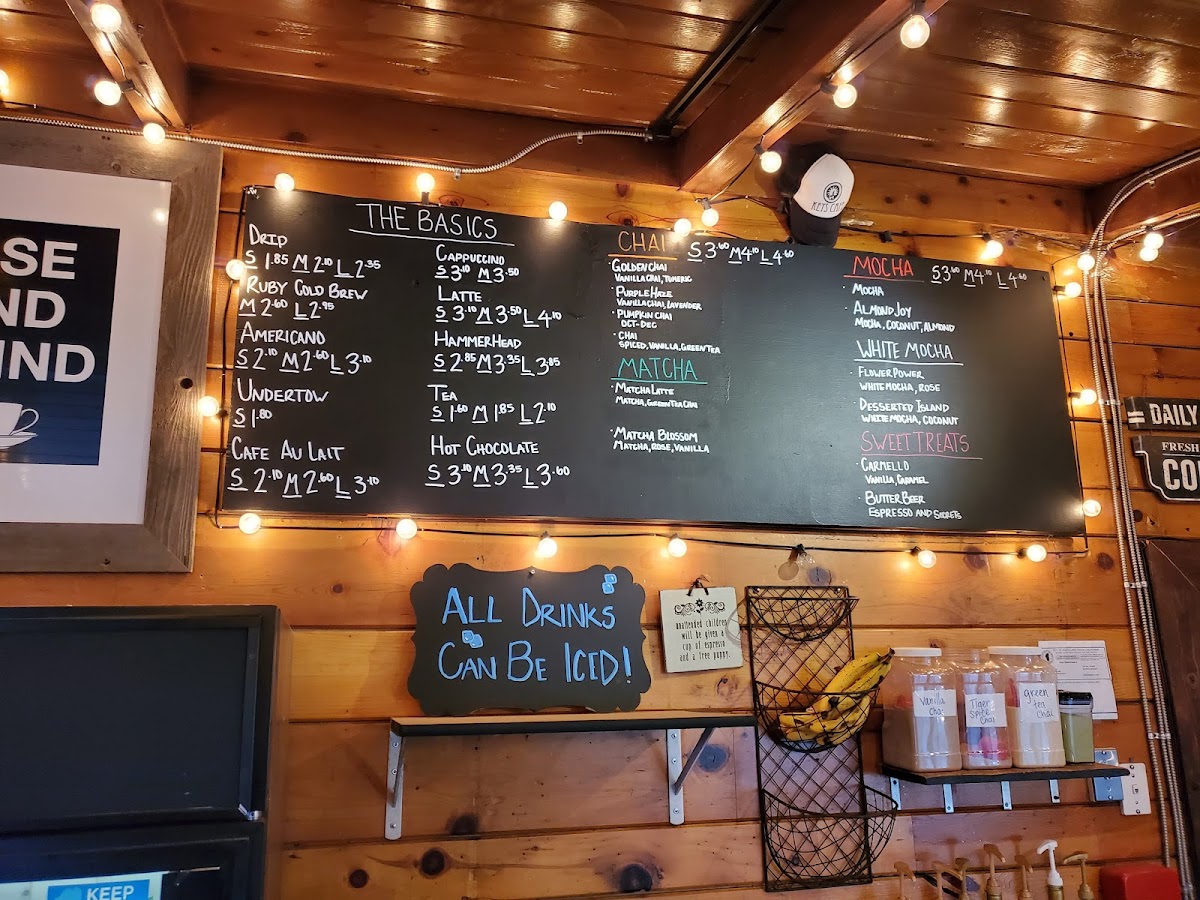 SE
ND
IND
THE BASICS
DRIP
S 1.85 M 2.10 L 2.35
RUBY COLD BREW
M 2.60 L 2.95
AMERICANO
S 2.10 M 2.60 L 3.10
UNDERTOW
S 1.80
CAFE AU LAIT
S 2.10 M 2.60 L 3.10
CAPPUCCINO
S 3.10 M 3.50
LATTE
S 3.10 M 3.50 L 4.10
HAMMERHEAD
S 2.85 M 3.35 L 3.85
TEA
S 1.60 M 1.85 L 2.10
HOT CHOCOLATE
S 3.10 M 3.35 L 3.60
CHAI S 3.60 M 4.10 L 4.60
· GOLDEN CHAI
VANILLA CHAI, TUMERIC
· PURPLE HAZE
VANILLA CHAI, LAVENDER
· PUMPKIN CHAI
OCT-DEC
· CHAI
SPICED, VANILLA, GREEN TEA
MATCHA
· MATCHA LATTE
MATCHA, GREEN TEA CHAI
· MATCHA BLOSSOM
MATCHA, ROSE, VANILLA
MOCHA S 3.60 M 4.10 L 4.60
· MOCHA
· ALMOND JOY
MOCHA, COCONUT, ALMOND
WHITE MOCHA
· FLOWER POWER
WHITE MOCHA, ROSE
· DESSERTED ISLAND
WHITE MOCHA, COCONUT
SWEET TREATS
· CARMELLO
VANILLA, CARAMEL
· BUTTER BEER
ESPRESSO AND SECRETS
DAILY
FRESH
CO
ALL DRINKS
CAN BE ICED!
unattended children
will be given a
cup of espresso
and a free puppy.
Vanilla
Chai
Tiger
Spice
Chai
green
tea
Chai
KEEP